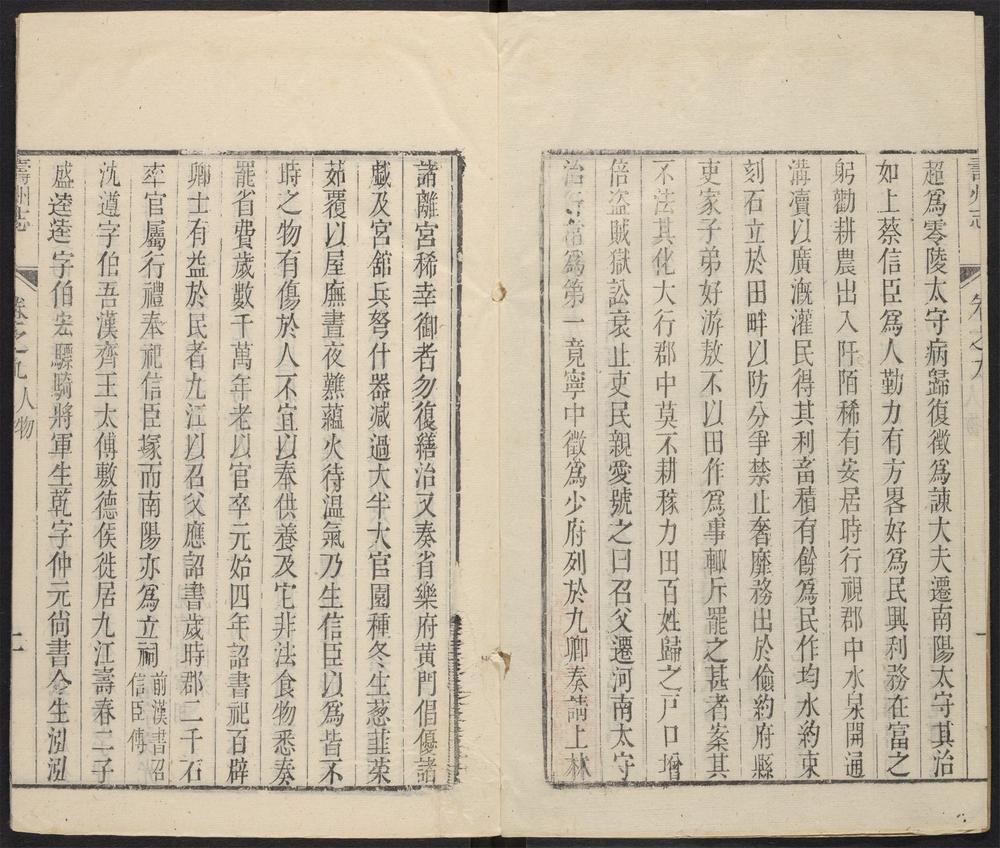 壽州志
卷之九
一
超爲零陵太守病歸復徵爲諫大夫遷南陽太守其治
如上蔡信臣爲人勤力有方畧好爲民興利務在富之
躬勸耕農出入阡陌稀有安居時行視郡中水泉開通
溝瀆以廣漑灌民得其利畜積有餘爲民作均水約束
刻石立於田畔以防分爭禁止奢靡務出於儉約府縣
吏家子弟好游敖不以田作爲事輙斥罷之甚者案其
不法其化大行郡中莫不耕稼力田百姓歸之戸口增
倍盜賊獄訟衰止吏民親愛號之曰召父遷河南太守
治行常爲第一竟寧中徵爲少府列於九卿奏請上林
諸離宮稀幸御者勿復繕治又奏省樂府黃門倡優諸
戱及宮舘兵弩什器减過大半大官園種冬生葱韮菜
茹覆以屋廡晝夜㸐蘊火待溫氣乃生信臣以爲皆不
時之物有傷於人不宜以奉供養及它非法食物悉奏
罷省費歲數千萬年老以官卒元始四年詔書祀百辟
卿士有益於民者九江以召父應詔書歲時郡二千石
率官屬行禮奉祀信臣塚而南陽亦爲立祠 前漢書召
信臣傳
沈遵字伯吾漢齊王太傅敷德侯徙居九江壽春二子
盛逵逵字伯宏驃騎將軍生乾字仲元尙書令生泓泓
壽州志
卷之九 人物
二